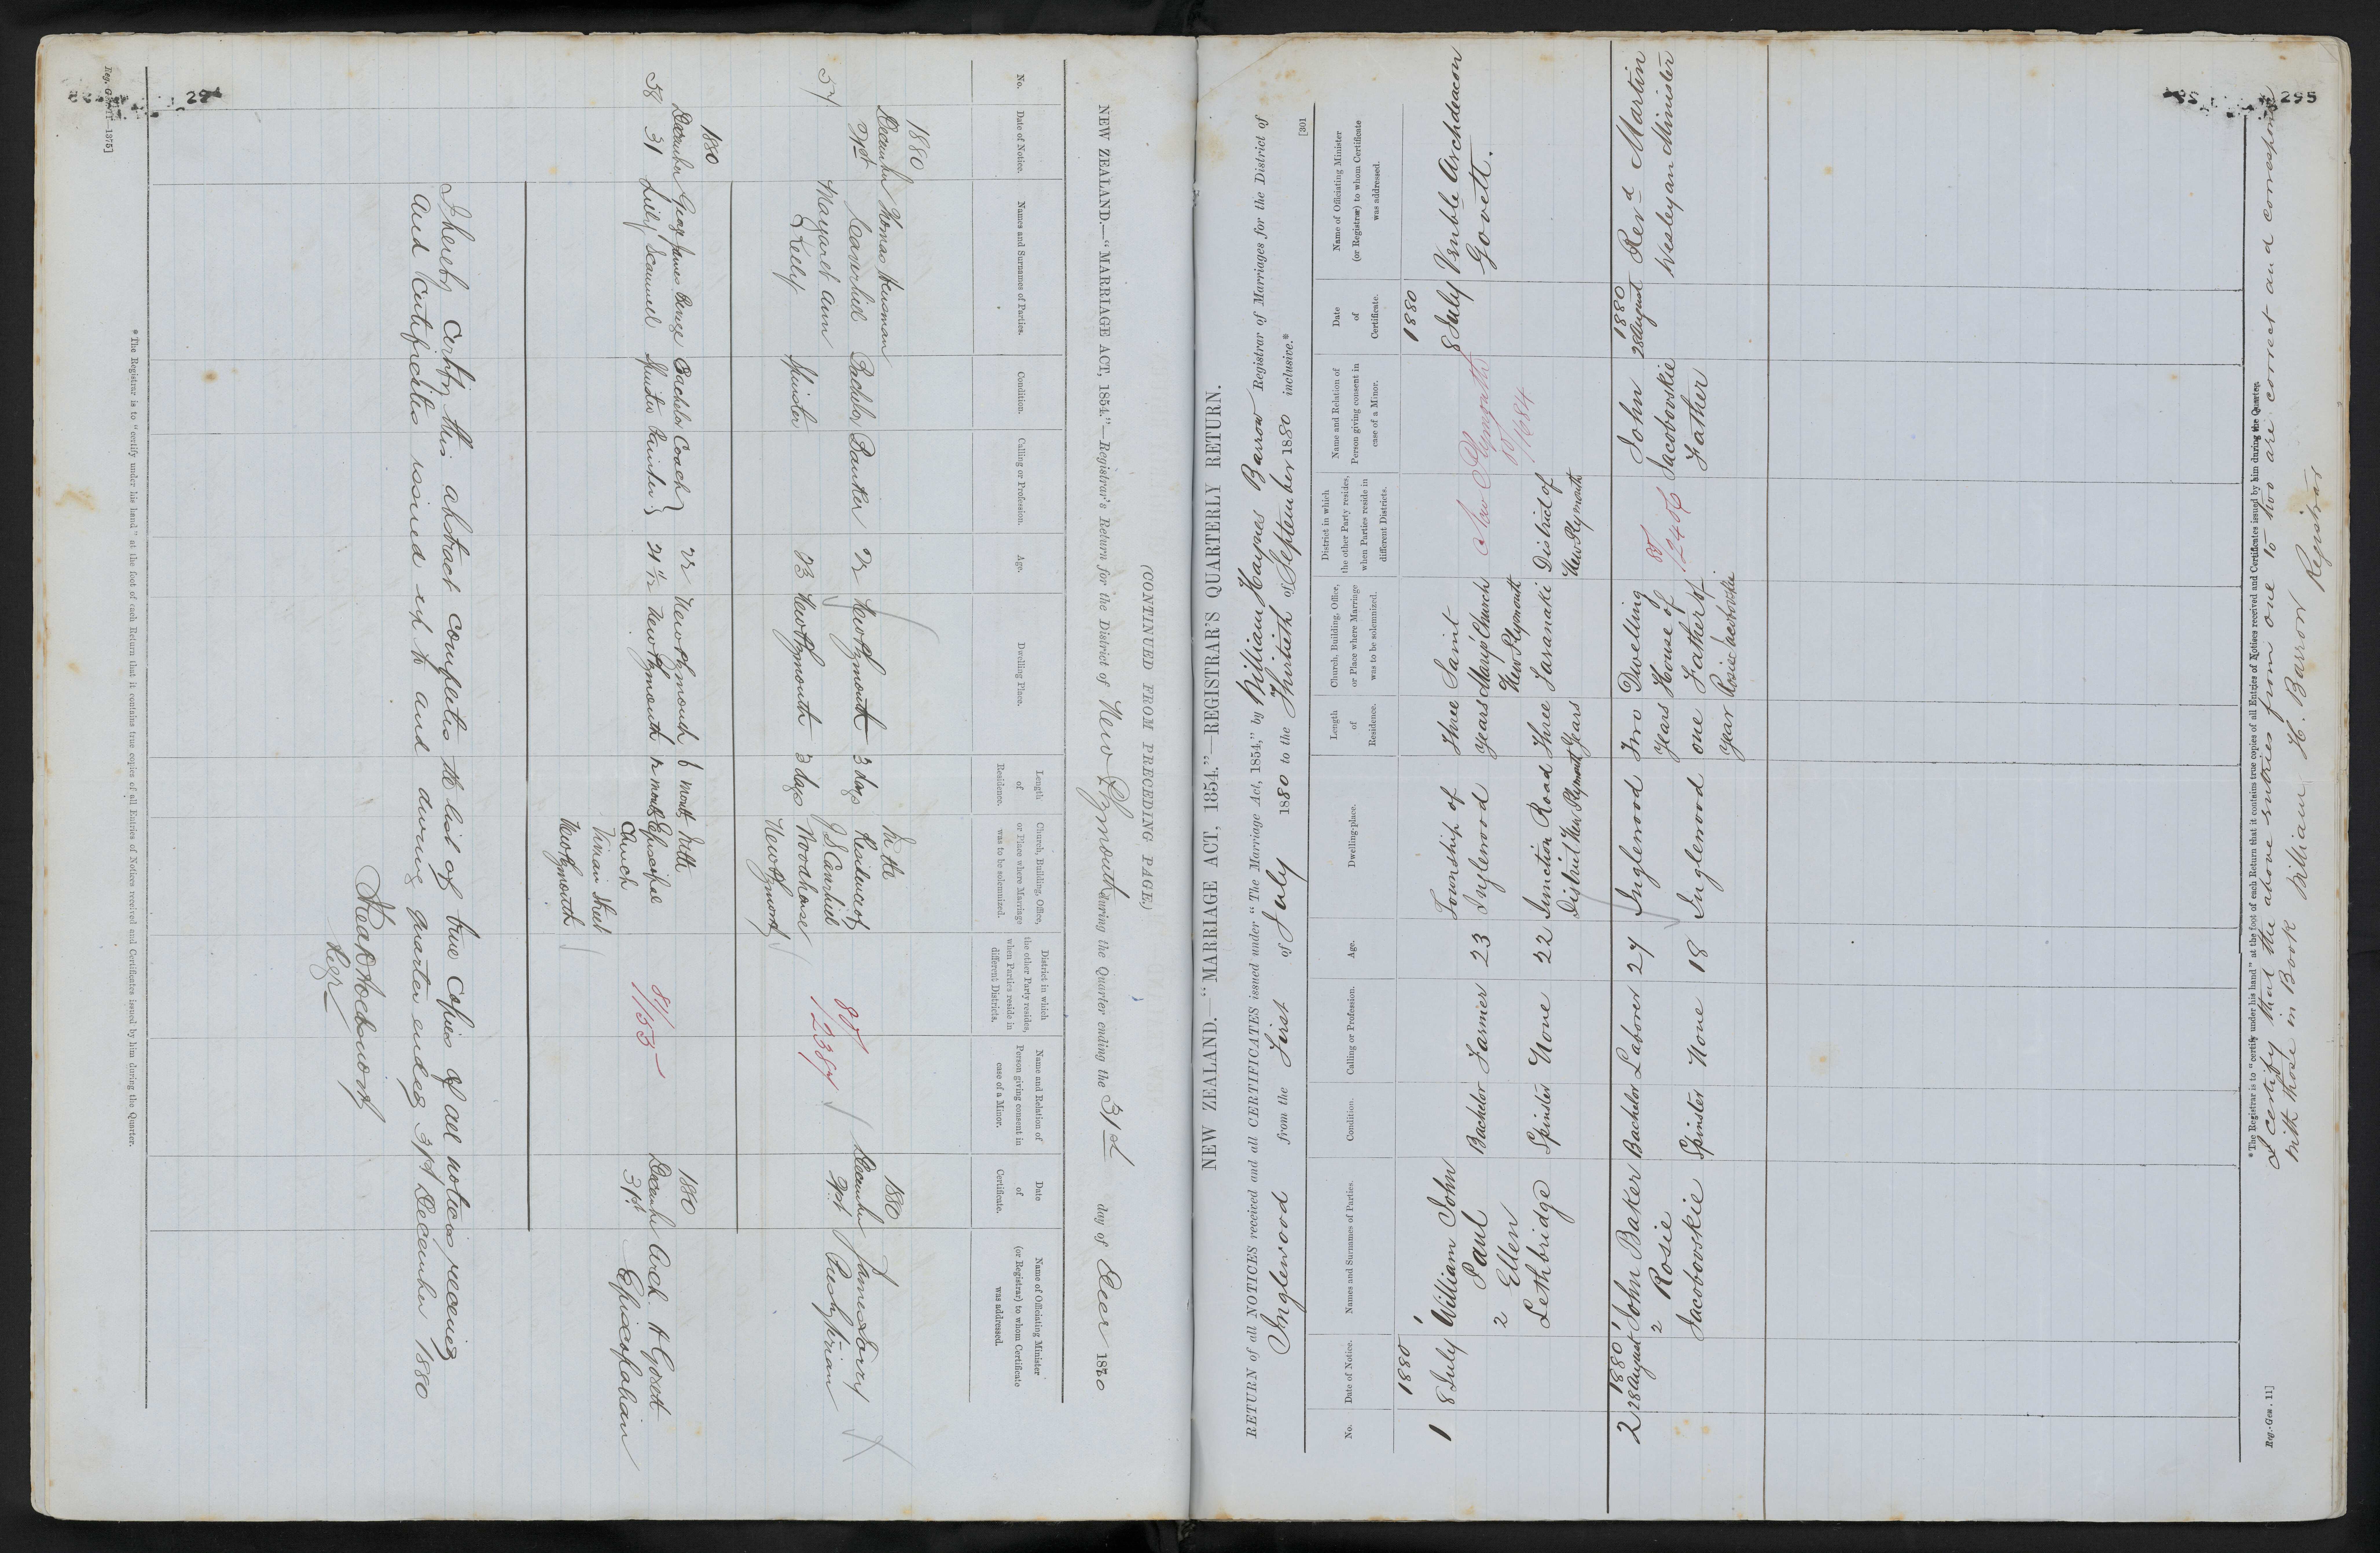 294
(CONTINUED FROM PRECEDING PAGE.)
NEW ZEALAND.—"MARRIAGE ACT, 1854."—Registrar's Return for the District of New Plymouth during the Quarter ending the 31st day of Decr 1880
No.
Date of Notice.
Names and Surnames of Parties.
Condition.
Calling or Profession.
Age.
Dwelling Place.
Length of Residence.
Church, Building, Office, or Place where Marriage was to be solemnized.
District in which the other Party resides, when Parties reside in different Districts.
Name and Relation of Person giving consent in case of a Minor.
Date of Certificate.
Name of Officiating Minister (or Registrar) to whom Certificate was addressed.
57
1880
December
Thomas Hensman
Bachelor
Banker
New Plymouth
3 days
Margaret Ann
Kelly
Spinster
23
New Plymouth
3 days
At the
Residence of
Woodhouse
New Plymouth
80/
1880
December
James
Presbyterian
58
1880
December
31
George James
Bachelor
Coach
Painter
22
New Plymouth
6 months
Lily Scannell
Spinster
New Plymouth
In the
Episcopal
Church
Vivian Street
New Plymouth
81/
1155
1880
December
31st
Arch. H Govett
Episcopalian
I hereby Certify this abstract completes the list of true copies of all notices received
and Certificates issued up to and during quarter ending 31st December 1880
Regr
*The Registrar is to "certify under his hand" at the foot of each Return that it contains true copies of all Entries of Notices received and Certificates issued by him during the Quarter.
295
[301
NEW ZEALAND.—"MARRIAGE ACT, 1854."—REGISTRAR'S QUARTERLY RETURN.
RETURN of all NOTICES received and all CERTIFICATES issued under "The Marriage Act, 1854," by William Haynes Barrow Registrar of Marriages for the District of
Inglewood from the First of July 1880 to the Thirtieth of September 1880 inclusive.*
No.
Date of Notice.
Names and Surnames of Parties.
Condition.
Calling or Profession.
Age.
Dwelling-place.
Length of Residence.
Church, Building, Office, or Place where Marriage was to be solemnized.
District in which the other Party resides, when Parties reside in different Districts.
Name and Relation of Person giving consent in case of a Minor.
Date of Certificate.
Name of Officiating Minister (or Registrar) to whom Certificate was addressed.
1
1880
8 July
1
William John
Paul
Bachelor
Farmier
23
Township of
Inglewood
Three
years
Saint
Mary's Church
New Plymouth
Taranaki
2
Ellen
Lethbridge
Spinster
None
22
Junction Road
District New Plymouth
Three
Years
District of
New Plymouth
New Plymouth
80
/1684
1880
8 July
Vnble Archdeacon
Govett.
2
1880
28 August
1
John Baker
Bachelor
Laborer
27
Inglewood
Two
Years
Dwelling
House of
Father of
Rosie Jacobovskie
2
Rosie
Jacobovskie
Spinster
None
18
Inglewood
one
year
80
/2406
John
Jacobovskie
Father
1880
28 August
Revd Martin
Wesleyan Minister
*The Registrar is to "certify under his hand" at the foot of each Return that it contains true copies of all Entries of Notices received and Certificates issued by him during the Quarter.
I certify that the above entries from one to two are correct and correspond
with those in Book William H. Barrow
Registrar
Reg.-Gen. 11]